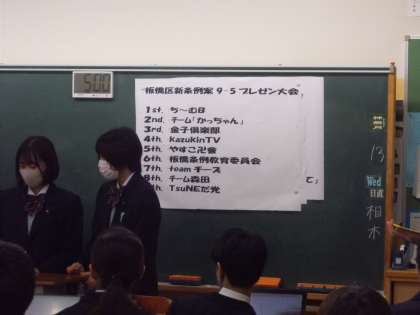 500
板橋区新条例案 9-5 プレゼン大会
1st. ぢ〜む日
2nd. チーム「かっちゃん」
3rd. 金子倶楽部
4th. KazukinTV
5th. やすこ卍会
6th. 板橋条例教育委員会
7th. team チーズ
8th. チーム森田
TsuNEだ光
て」
13
Wed
日直
柏木